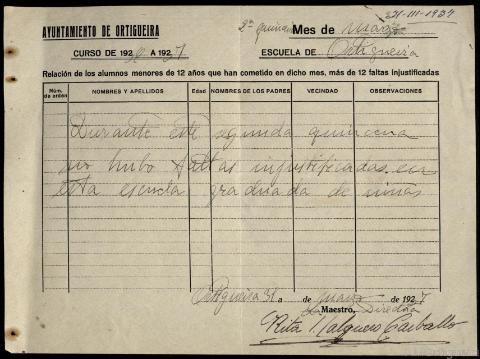 31-III-1937
AYUNTAMIENTO DE ORTIGUEIRA
2ª quincena Mes de marzo
CURSO DE 1926 A 1937
ESCUELA DE Ortigueira
Relación de los alumnos menores de 12 años que han cometido en dicho mes, más de 12 faltas injustificadas
Núm. de orden NOMBRES Y APELLIDOS Edad NOMBRES DE LOS PADRES VECINDAD OBSERVACIONES
Durante esta segunda quincena
no hubo faltas injustificadas en
esta escuela graduada de niñas
Ortigueira 31 a de marzo de 1927
Maestro, Directora
Rita Malguero Carballo